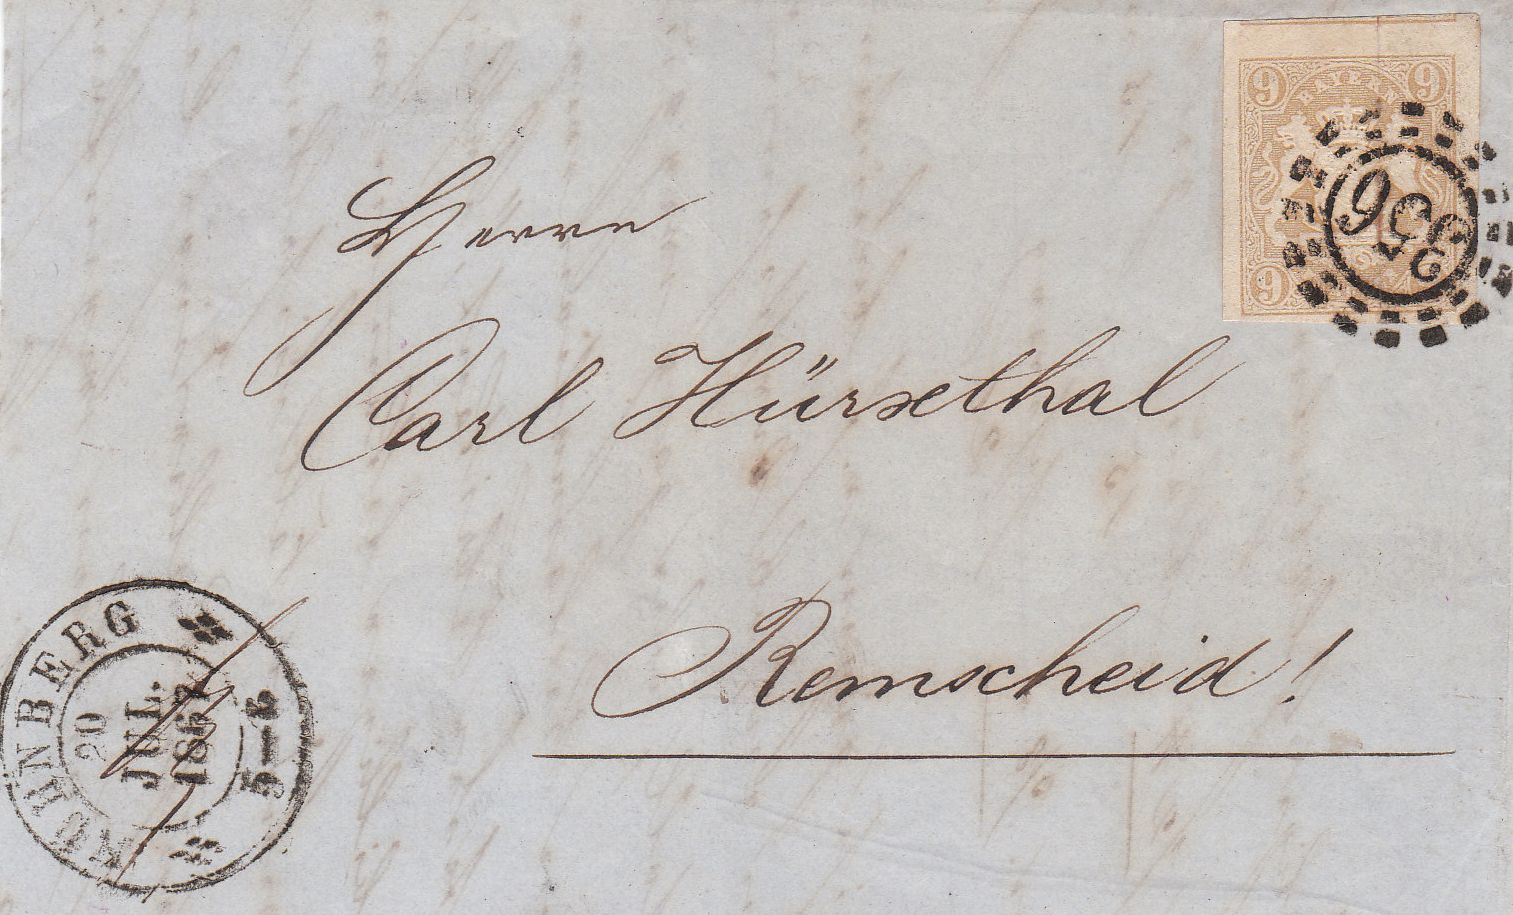 9 BAYERN 9
9
Herrn
Carl Hürxthal
Remscheid!
NÜRNBERG
20
JUL.
1867